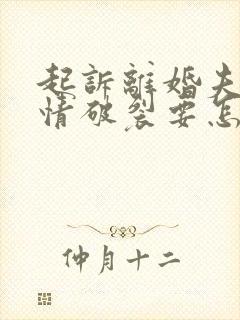 起訴離婚夫
情破裂要怎
仲月十二